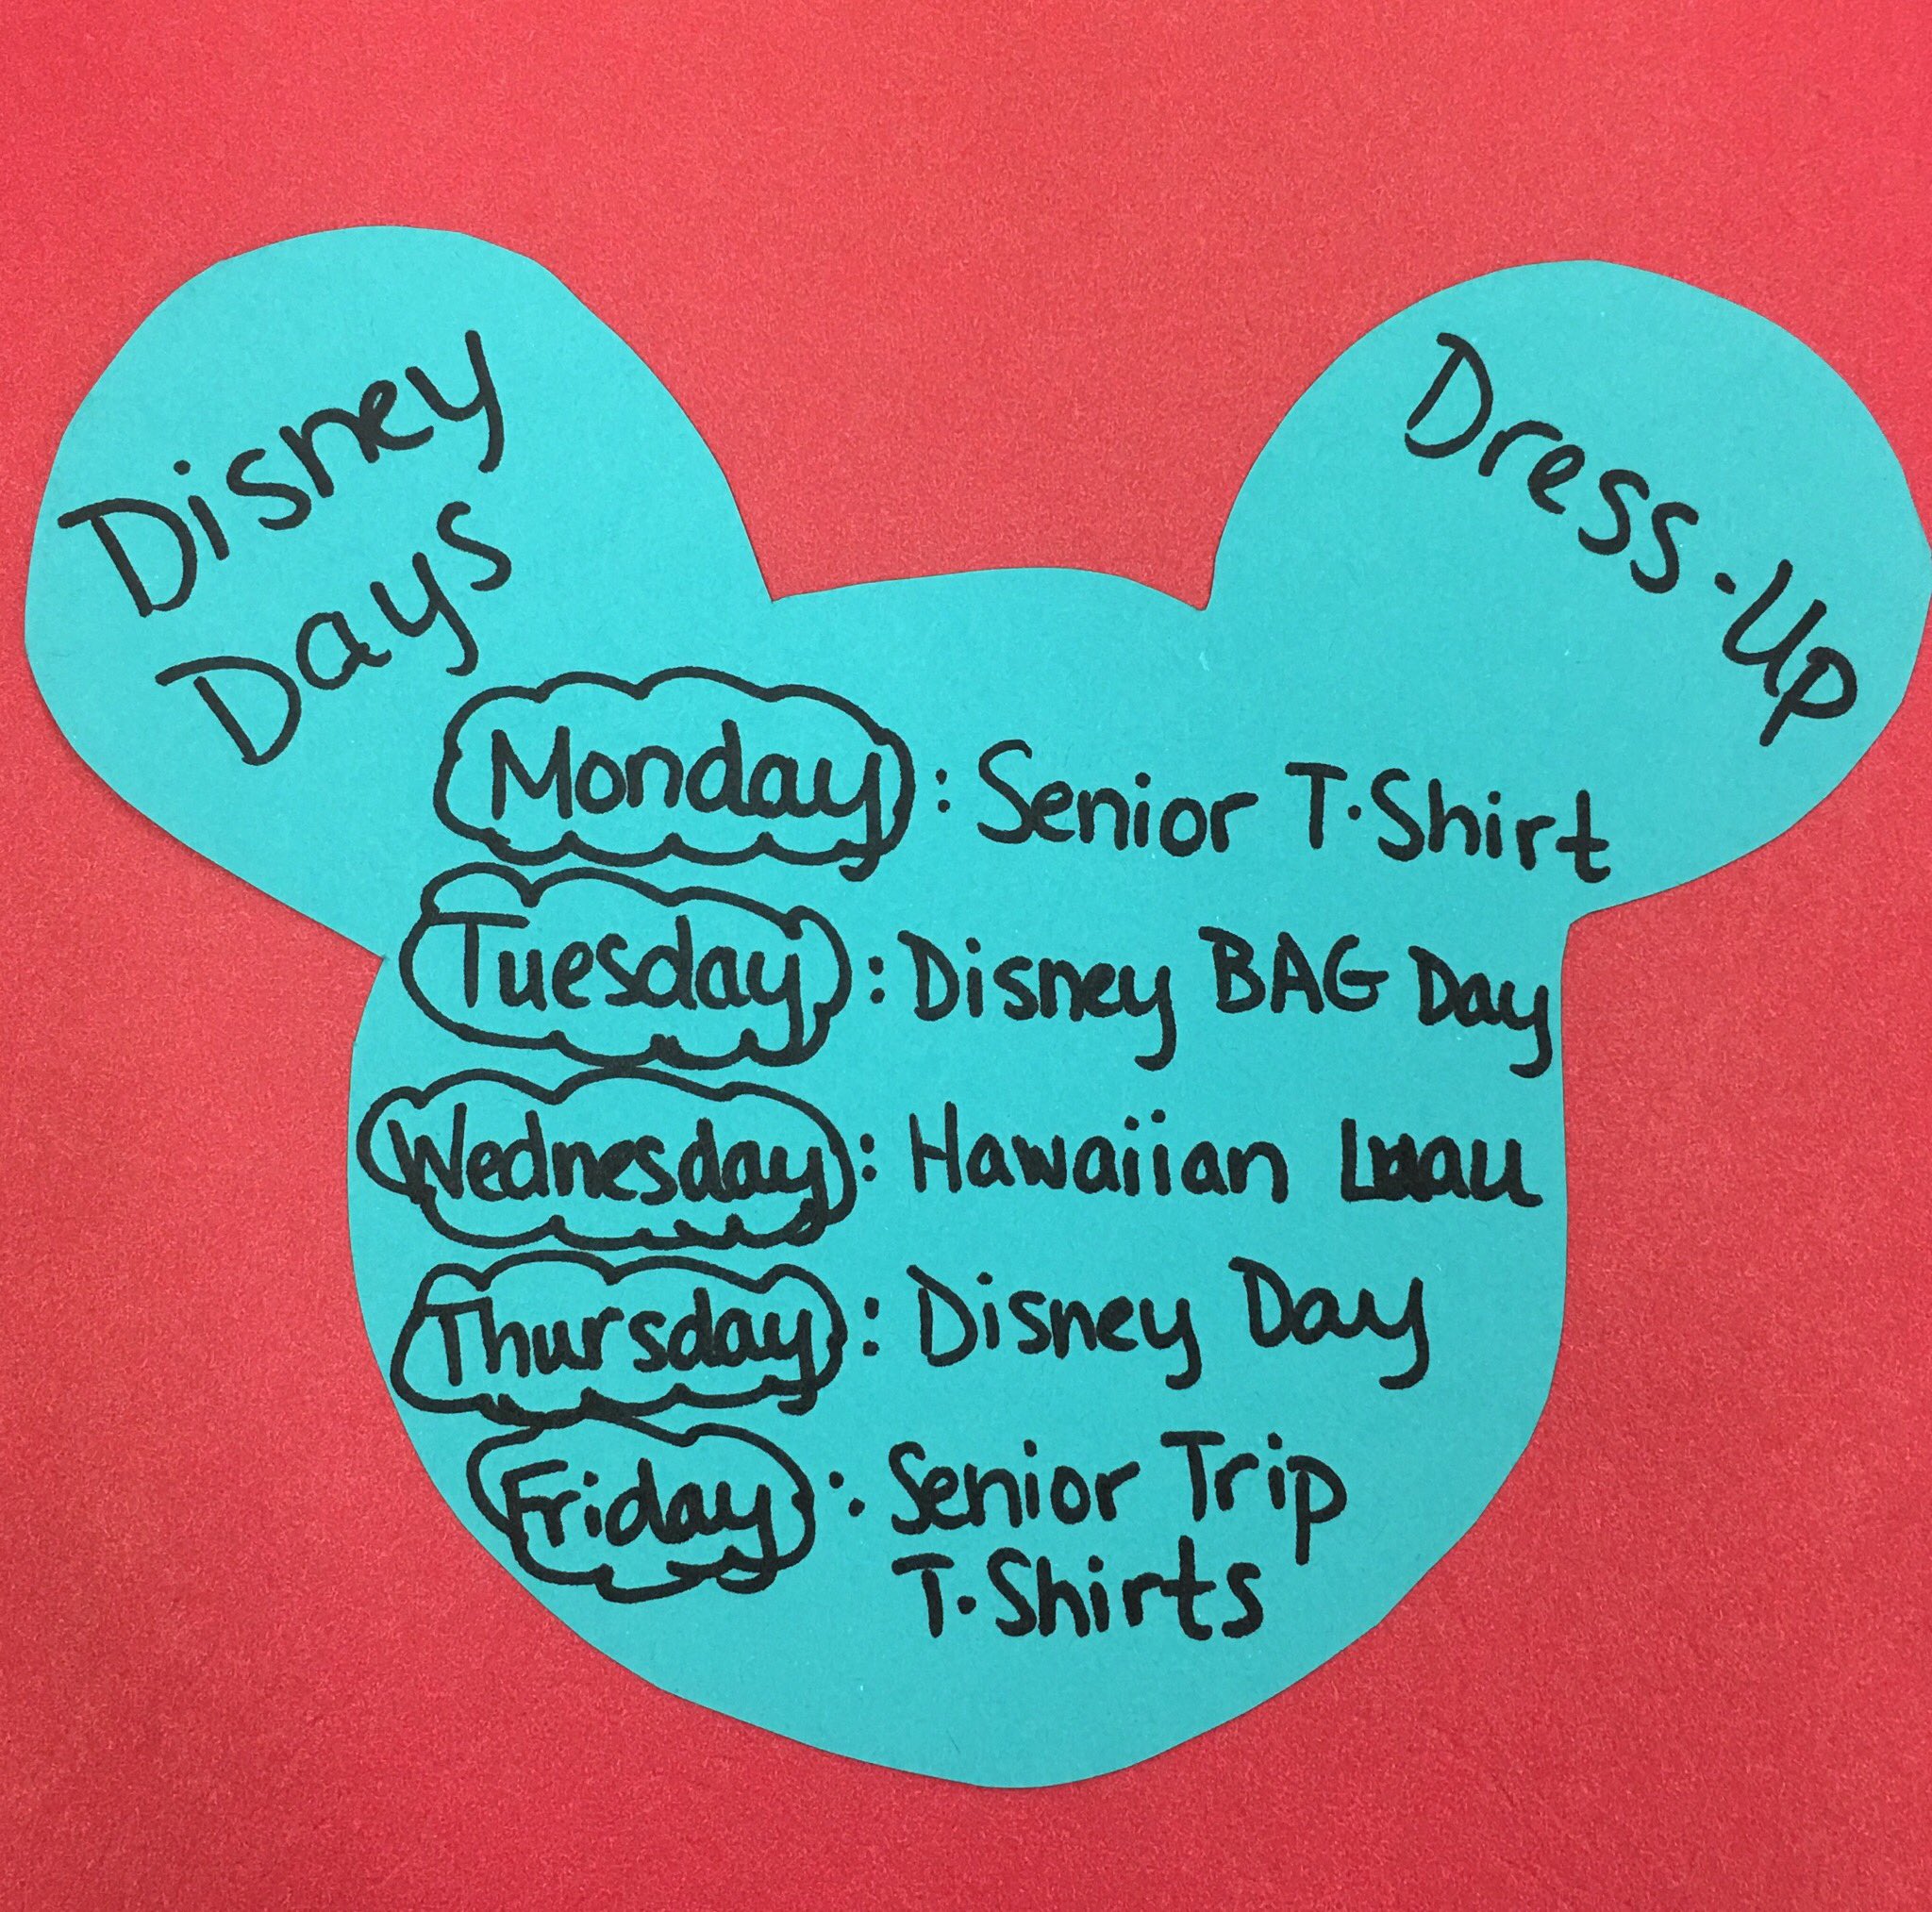 Disney
Days
Dress-Up
Monday: Senior T-Shirt
Tuesday: Disney BAG Day
Wednesday: Hawaiian Luau
Thursday: Disney Day
Friday: Senior Trip
T-Shirts